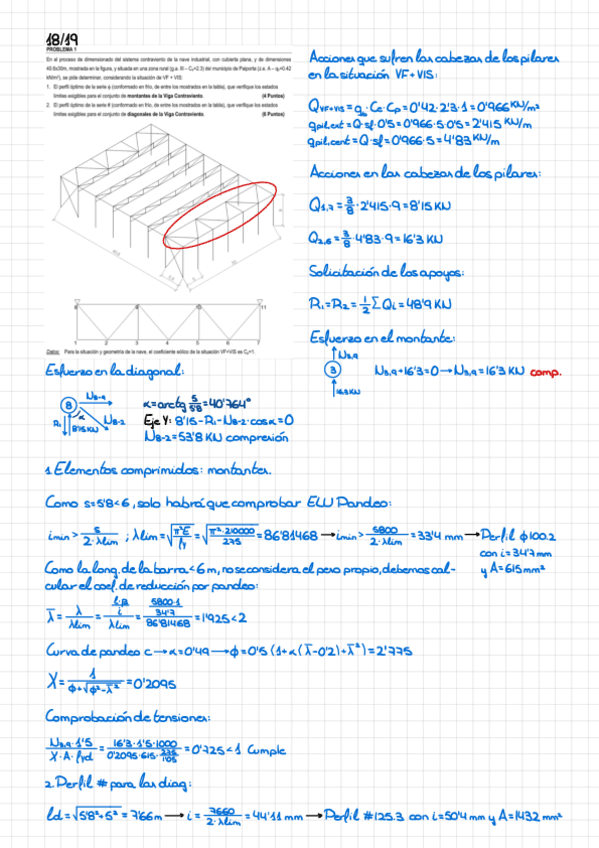 18/19
PROBLEMA 1
En el proceso de dimensionado del sistema contraviento de la nave industrial, con cubierta plana, y de dimensiones
mostrada en la figura, y situada en una zona rural (g.a. III – Ce=2.3) del municipio de Paiporta (z.e. A – qb=0.42
kN/m²), se pide determinar, considerando la situación de VF + VIS:
1. El perfil óptimo de la serie ϕ (conformado en frío, de entre los mostrados en la tabla), que verifique los estados
límites exigibles para el conjunto de montantes de la Viga Contraviento. (4 Puntos)
2. El perfil óptimo de la serie # (conformado en frío, de entre los mostrados en la tabla), que verifique los estados
límites exigibles para el conjunto de diagonales de la Viga Contraviento. (6 Puntos)
8 9 10 11
1 2 3 4 5 6 7
Datos: Para la situación y geometría de la nave, el coeficiente eólico de la situación VF+VIS es Cp=1.
Acciones que sufren las cabezas de los pilares
en la situación VF+VIS:
QVF+VIS = qb · Ce · Cp = 0'42 · 2'3 · 1 = 0'966 KN/m²
qpil,ext = Q · sf · 0'5 = 0'966 · 5 · 0'5 = 2'415 KN/m
qpil,cent = Q · sf = 0'966 · 5 = 4'83 KN/m
Acciones en las cabezas de los pilares:
Q1,7 = 3/8 · 2'415 · 9 = 8'15 KN
Q2,6 = 3/8 · 4'83 · 9 = 16'3 KN
Solicitación de los apoyos:
R1 = R2 = 1/2 ΣQi = 48'9 KN
Esfuerzo en el montante:
N3,9
3
16'3 KN
N3,9 + 16'3 = 0 → N3,9 = 16'3 KN comp.
Esfuerzo en la diagonal:
N8-9
8
α
R1 8'15 KN
N8-2
α = arctg 5/5'8 = 40'764°
Eje Y: 8'15 - R1 - N8-2 · cos α = 0
N8-2 = 53'8 KN compresión
1. Elementos comprimidos: montantes.
Como s = 5'8 < 6, solo habrá que comprobar ELU Pandeo:
imin > s/2·λlim ; λlim = √π²E/fy = √π²·210000/275 = 86'81468 → imin > 5800/2·λlim = 33'4 mm → Perfil ϕ100.2
con i = 34'7 mm
y A = 615 mm²
Como la long. de la barra < 6 m, no se considera el peso propio, debemos cal-
cular el coef. de reducción por pandeo:
λ̄ = λ/λlim = (L·β/i)/λlim = (5800·1/34'7)/86'81468 = 1'925 < 2
Curva de pandeo c → α = 0'49 → ϕ = 0'5 (1 + α (λ̄ - 0'2) + λ̄²) = 2'775
X = 1/ϕ+√ϕ²-λ̄² = 0'2095
Comprobación de tensiones:
N3,9 · 1'5/X · A · fyd = 16'3 · 1'5 · 1000/0'2095 · 615 · 275/1'05 = 0'725 < 1 Cumple
2. Perfil # para las diag:
ld = √5'8²+5² = 7'66 m → i = 7660/2·λlim = 44'11 mm → Perfil #125.3 con i = 50'4 mm y A = 1432 mm²